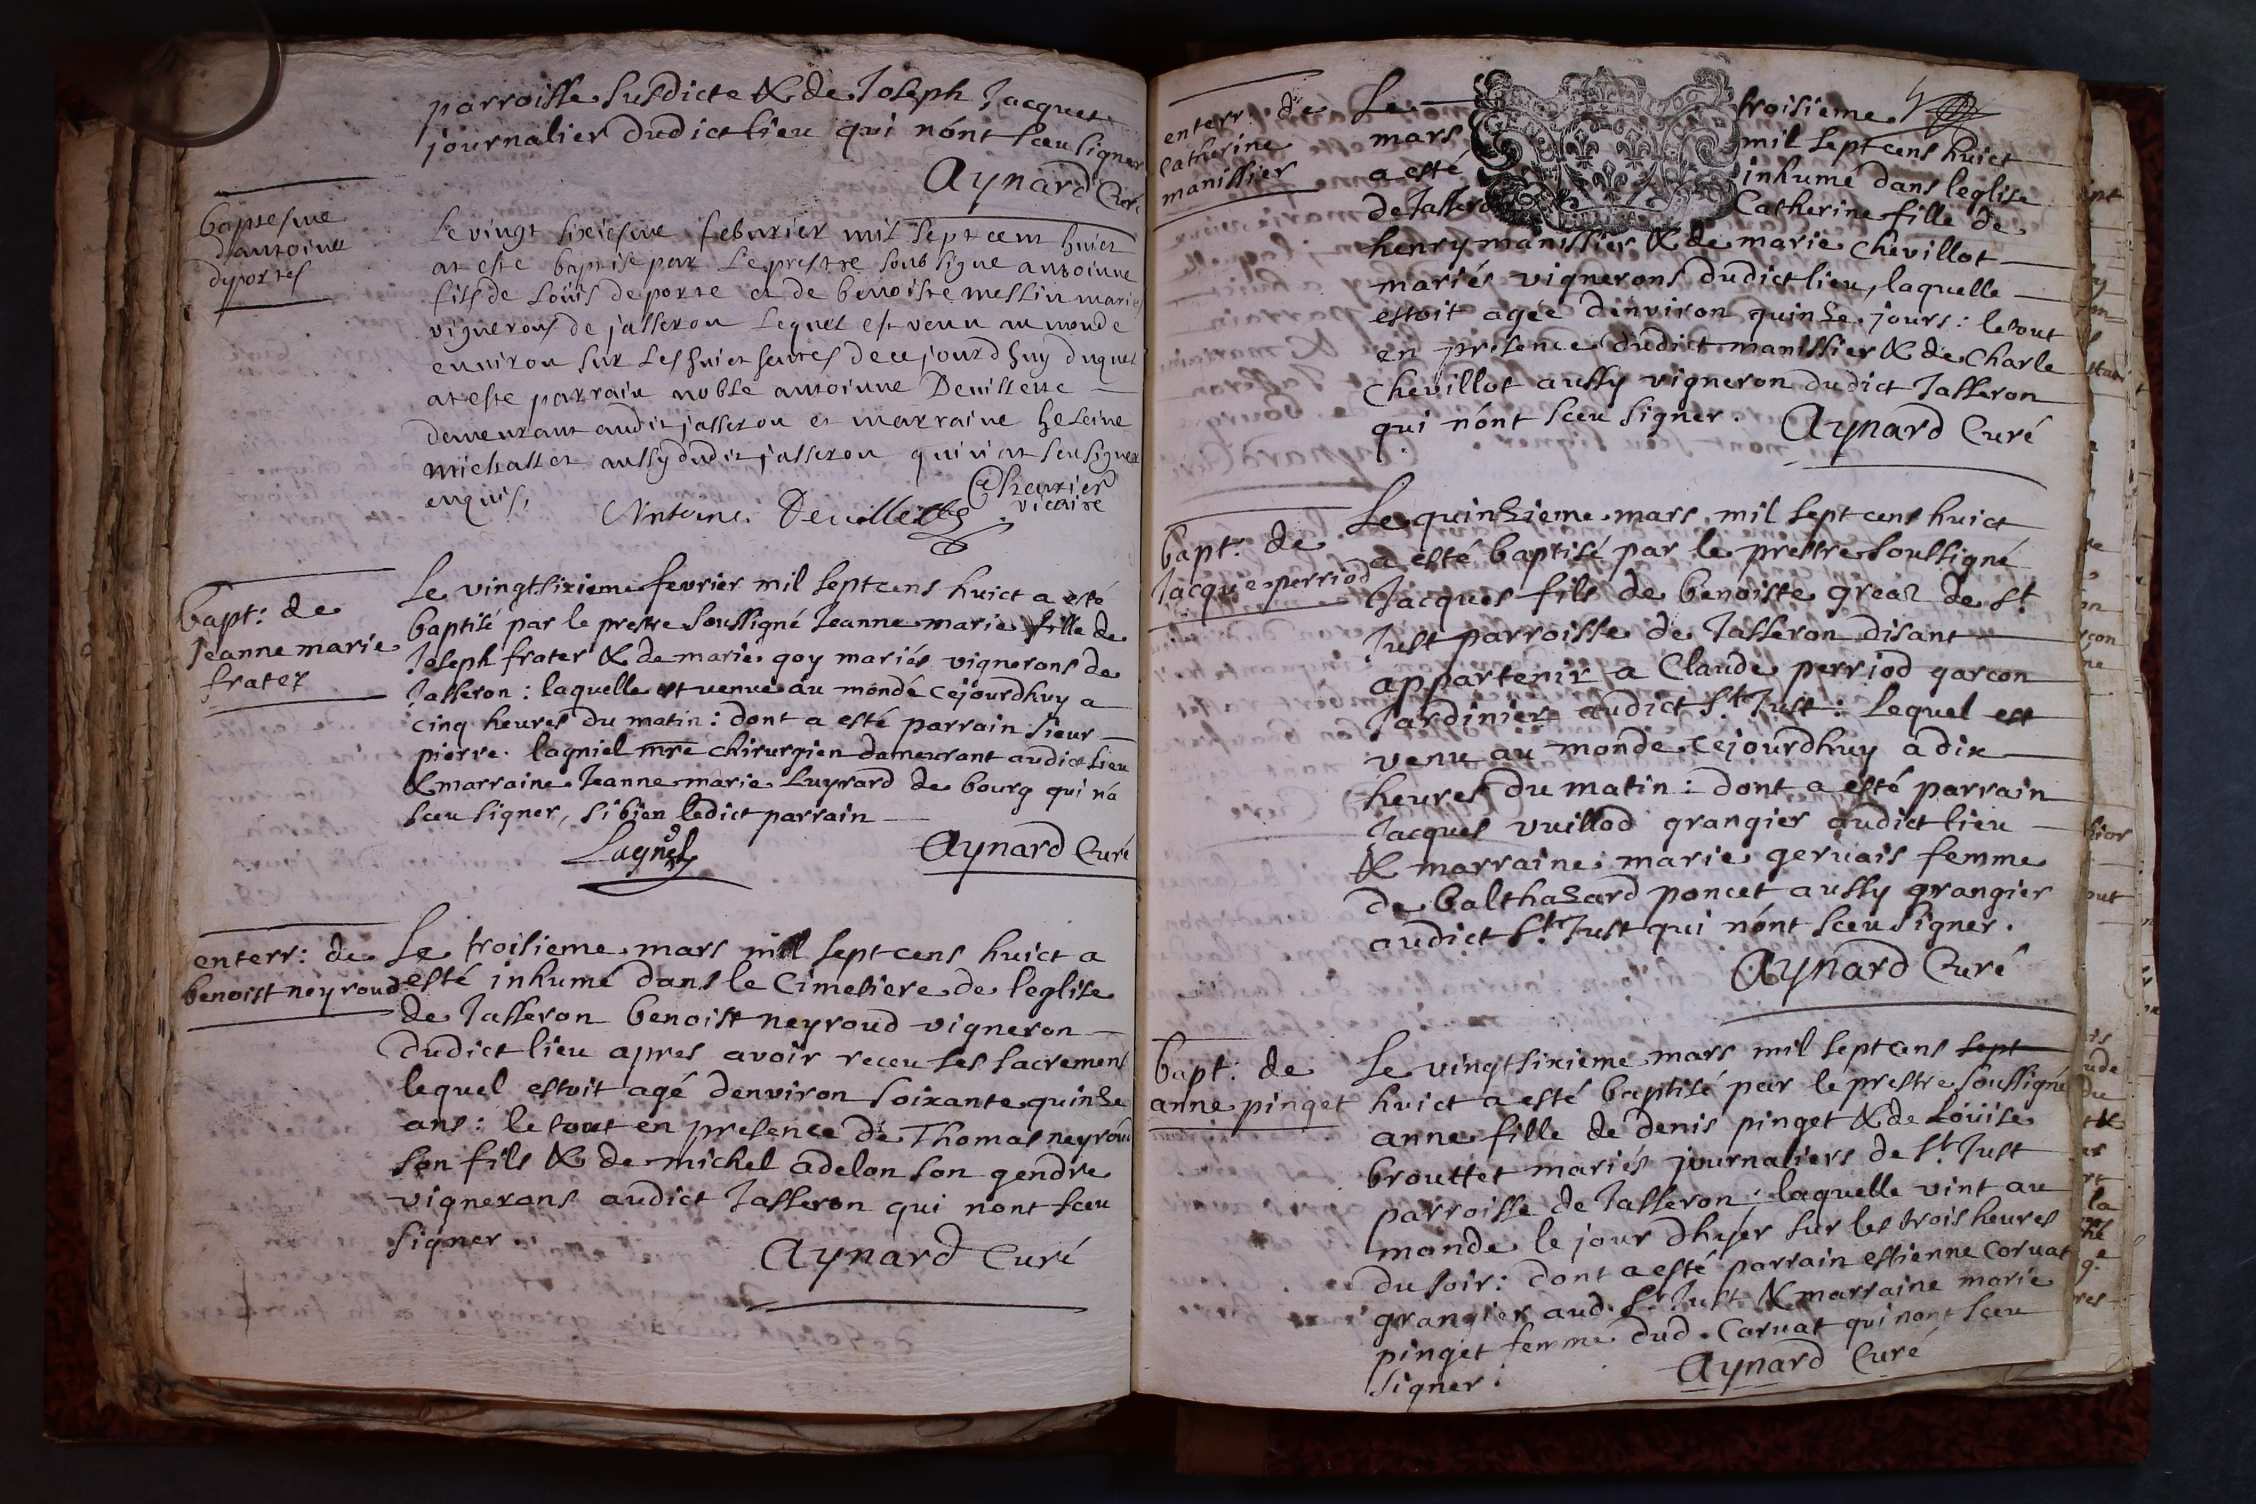 parroisse susdicte & de Joseph Jacquet
journalier dudict lieu qui n'ont sceu signer
Aynard Curé
baptesme
d'antoinne
deportes
Le vingt sixiesme febvrier mil sept cent huict
at esté baptisé par Le prestre soubsigné antoinne
fils de Loüis deporte et de benoiste messin mariés
vignerons de jasseron Lequel est venu au monde
environ sur Les huict heures de ce jourdhuy duquel
at esté parrain noble antoinne Devillette
demeurant audit jasseron et marraine heleine
michallet aussy dudit jasseron qui n'at seu signer
enquis,
Antoine Devillette
Cheurier
vicaire
bapt: de
Jeanne marie
frater
Le vingtsixieme fevrier mil sept cens huict a esté
baptisé par le prestre soussigné Jeanne marie fille de
Joseph frater & de marie goy mariés vignerons de
Jasseron : laquelle est venue au monde cejourdhuy a
cinq heures du matin : dont a esté parrain sieur
pierre lagniel mre chirurgien demeurant audict lieu
& marraine Jeanne marie Luyrard de bourg qui n'a
sceu signer, si bien ledict parrain
Lagniel
Aynard Curé
enterr: de
benoist neyroud
Le troisieme mars mil sept cens huict a
esté inhumé dans le Cimetiere de leglise
de Jasseron benoist neyroud vigneron
dudict lieu apres avoir receu ses sacremens
lequel estoit agé denviron soixante quinze
ans : le tout en presence de Thomas neyroud
son fils & de michel adelon son gendre
vignerons audict Jasseron qui nont sceu
signer.
Aynard Curé
enterr: de
Catherine
manissier
Le troisieme
mars mil sept cens huict
a esté inhumé dans leglise
de Jasseron Catherine fille de
henry manissier & de marie Chevillot
mariés vignerons dudict lieu, laquelle
estoit agée denviron quinze jours : le tout
en presence dudict manissier & de Charle
Chevillot aussy vigneron dudict Jasseron
qui n'ont sceu signer.
Aynard Curé
bapt: de
Jacque perriod
Le quinzieme mars mil sept cens huict
a esté baptisé par le prestre soussigné
Jacques fils de benoiste greaz de St
Just parroisse de Jasseron disant
appartenir a Claude perriod garcon
Jardinier audict St Just : lequel est
venu au monde cejourdhuy a dix
heures du matin : dont a esté parrain
Jacques vuillod grangier audict lieu
& marraine marie gervais femme
de balthazard poncet aussy grangier
audict St Just qui n'ont sceu signer.
Aynard Curé
bapt: de
anne pinget
Le vingtsixieme mars mil sept cens sept
huict a esté baptisé par le prestre soussigné
anne fille de denis pinget & de Loüise
brouttet mariés journaliers de St Just
parroisse de Jasseron : laquelle vint au
monde le jour dhyer sur les trois heures
du soir : dont a esté parrain estienne corvat
grangier aud. St Just & marraine marie
pinget femme dud. Corvat qui nont sceu
signer.
Aynard Curé